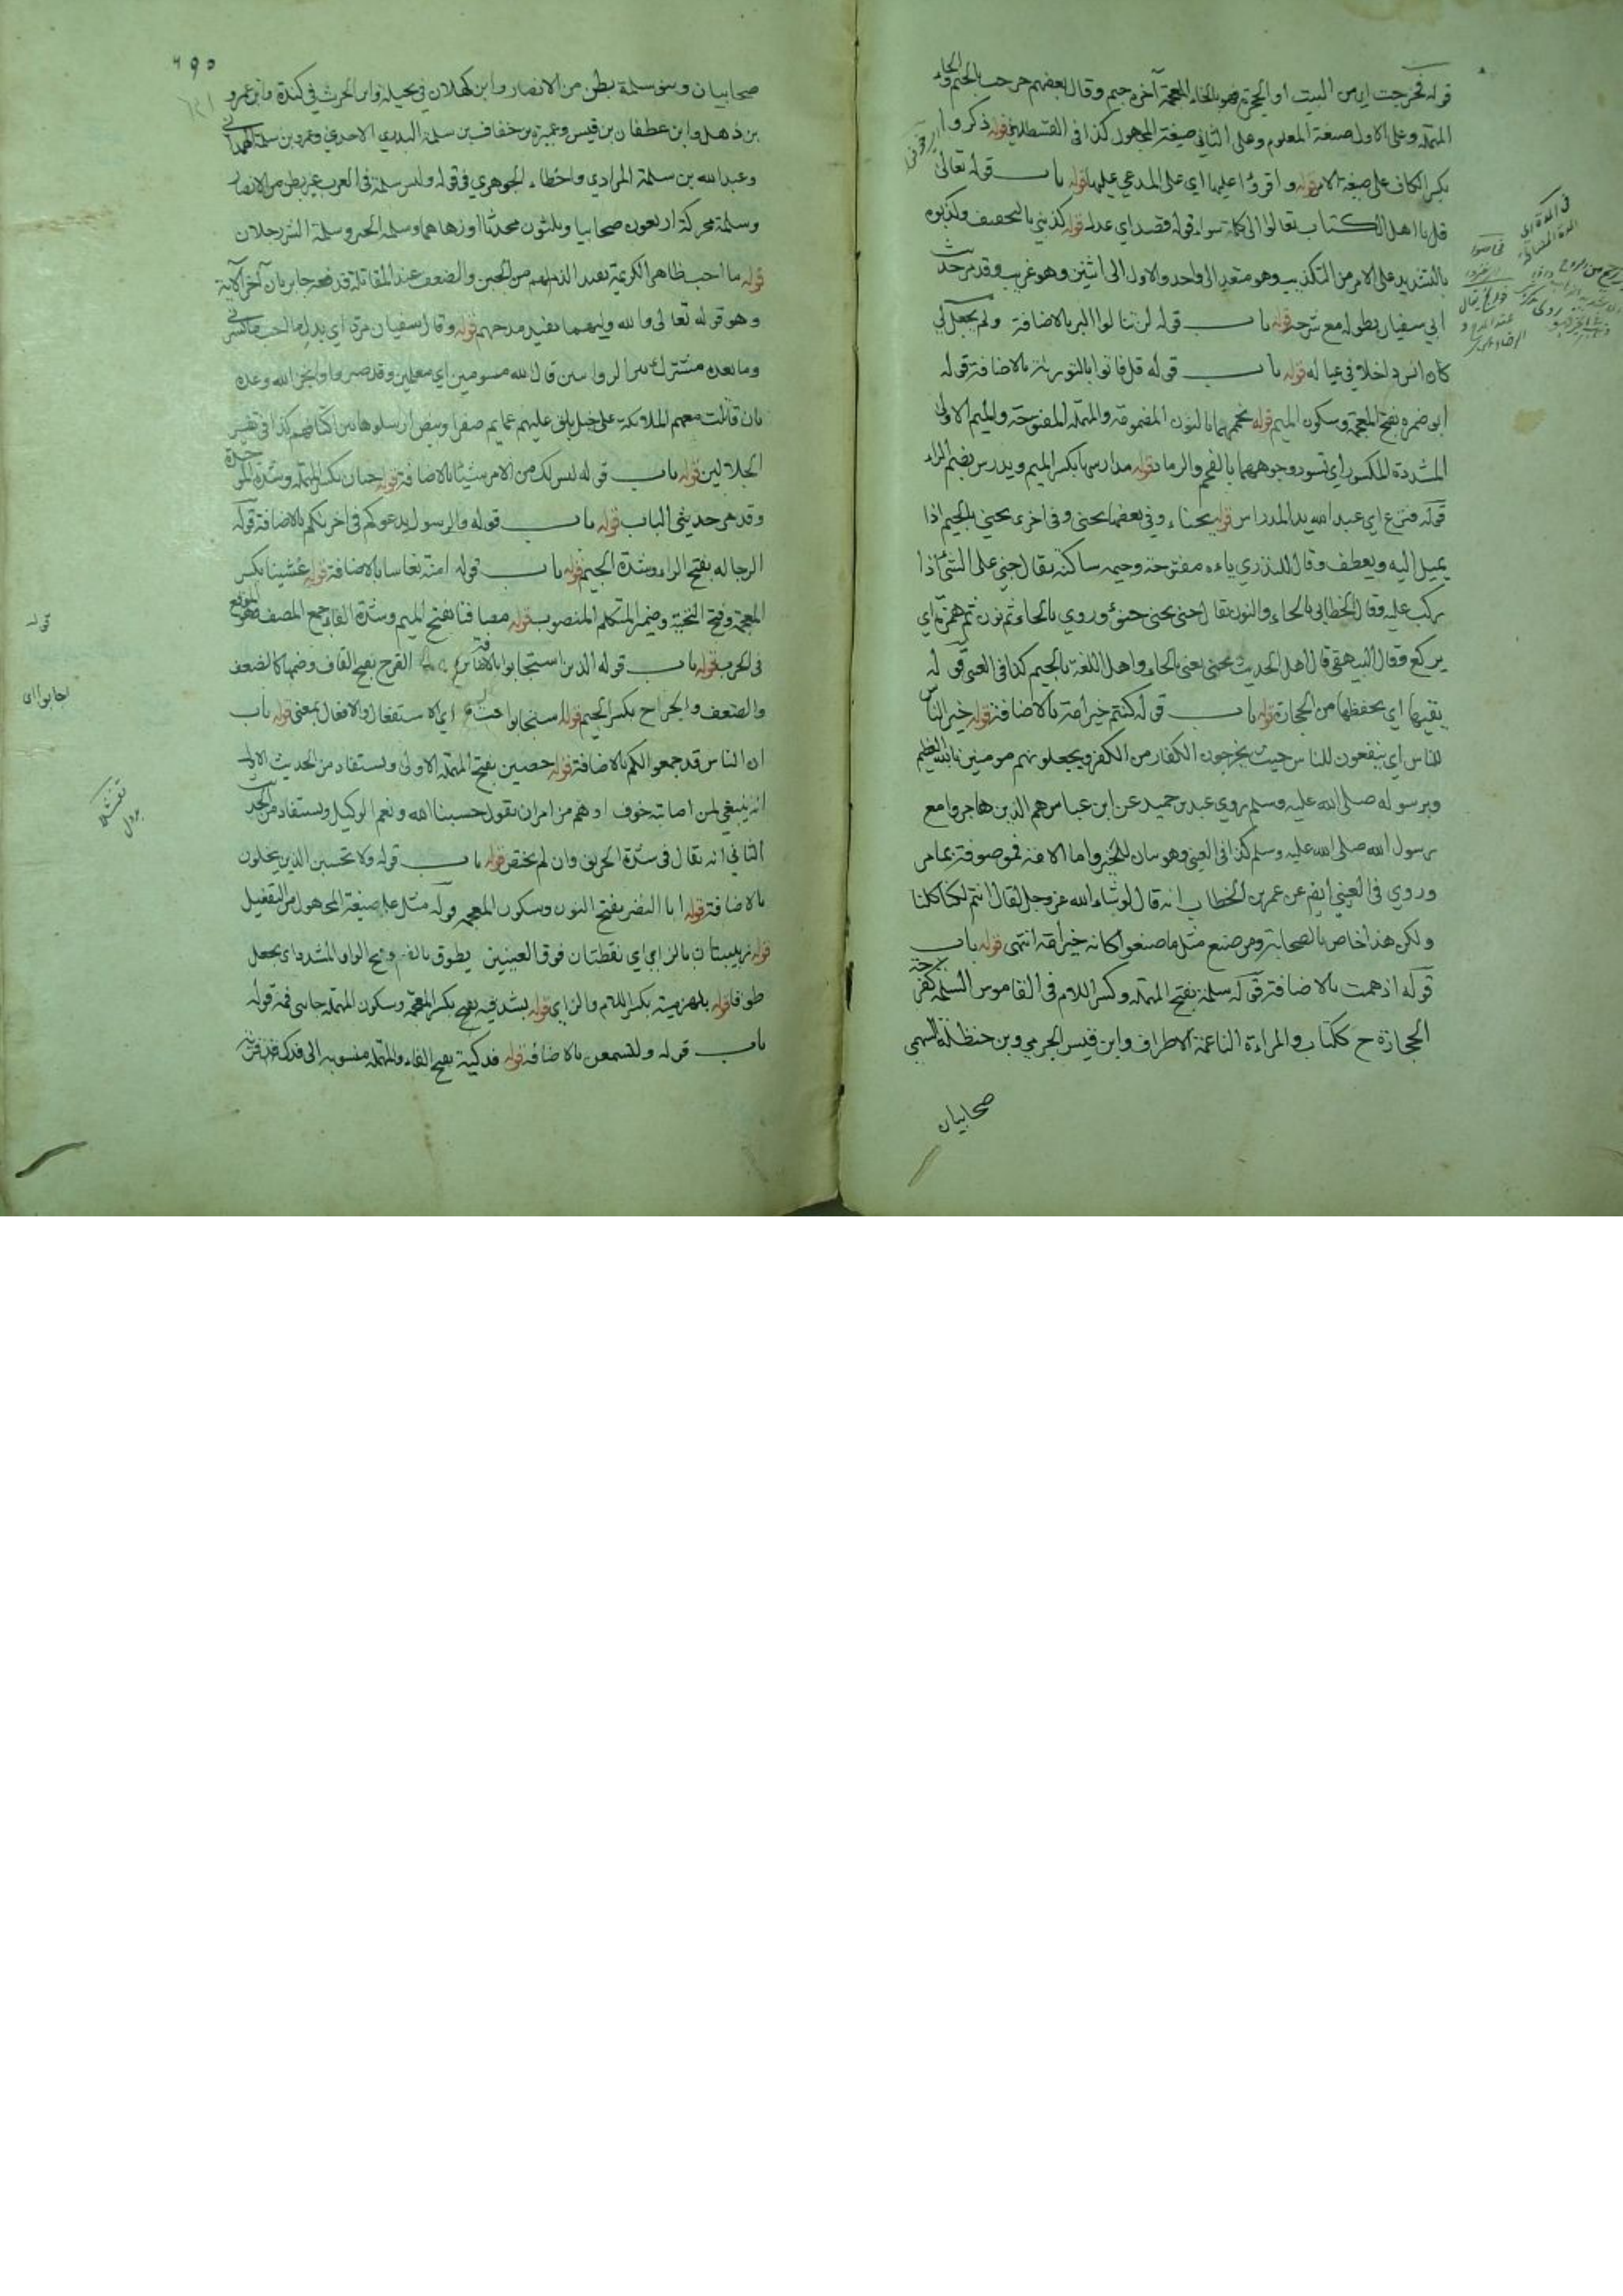 قوله فخرجت اي من البيت او الحجرة وهو بالخاء المعجمة آخره جيم وقال بعضهم جرحت بالجيم والحاء
المهملة وعلى الاول صيغة المعلوم وعلى الثاني صيغة المجهول كذا في القسطلاني قوله ذكروا
بكسر الكاف على صيغة الامر قوله واقرؤا عليها اي على المدعي عليها قوله باب قوله تعالى
قل يا اهل الكتاب تعالوا الى كلمة سواء قوله قصد اي عدل قوله كذبني بالتخفيف وكذبوه
بالتشديد على الامر من التكذيب وهو متعد الى واحد والاول الى اثنين وهو غريب وقد مر حديث
ابي سفيان بطوله مع شرحه قوله باب قوله لن تنالوا البر بالاضافة ولم يجعل لي
كان انس داخلا في عياله قوله باب قوله قل فاتوا بالتورية بالاضافة قوله
ابو ضمرة بفتح المعجمة وسكون الميم قوله نحممهما بالنون المضمومة والمهملة المفتوحة والميم الاولى
المشددة المكسورة اي نسود وجوههما بالفحم والرماد قوله مدارسها بكسر الميم ويدرس بضم الراء
قوله فنزع اي عبد الله يد المدراس قوله يحناء وفي بعضها يحنى وفي اخرى يجني بالجيم اذا
يميل اليه ويعطف وقال المنذري ياءه مفتوحة وجيمه ساكنة يقال جنى على الشئ اذا
يركب عليه وقال الخطابي بالحاء والنون يقال احنى يحنى حنئ وروي بالحاء ثم نون ثم همزة اي
يركع وقال البيهقي قال اهل الحديث يحنى يعنى بالحاء واهل اللغة بالجيم كذا في العيني قوله
يقيها اي يحفظها من الحجارة قوله باب قوله كنتم خير امة بالاضافة قوله خير الناس
للناس اي ينفعون للناس حيث يخرجون الكفار من الكفر ويجعلونهم مومنين بالله العظيم
وبرسوله صلى الله عليه وسلم روي عبد بن حميد عن ابن عباس هم الذين هاجروا مع
رسول الله صلى الله عليه وسلم كذا في العيني وهو بيان للخير واما الامة فموصوفة بما مر
وروي في العيني ايضا عن عمر بن الخطاب انه قال لو شاء الله عز وجل لقال انتم لكنا كلنا
ولكن هذا خاص بالصحابة ومن صنع مثل ما صنعوا كانه خير امة انتهى قوله باب
قوله اذ همت بالاضافة قوله سلمة بفتح المهملة وكسر اللام في القاموس السلمة كفرحة
الحجارة ج ككتاب والمراءة الناعمة الاطراف وابن قيس الجرمي وبن حنظلة السهمي
صحابيان
٦٩٥
صحابيان وبنو سلمة بطن من الانصار وابن كهلان في بجيلة وابن الحرث في كندة وابن عمرو
بن ذهل وابن غطفان بن قيس وعميرة بن خفاف بن سلمة البدري الاحدي وعمرو بن سلمة الهمداني
وعبد الله بن سلمة المرادي واخطاء الجوهري في قوله وليس سلمة في العرب غير بطن من الانصار
وسلمة محركة اربعون صحابيا وثلثون محدثا او زهاهما وسلمة الخير وسلمة الشر رجلان
قوله ما احب ظاهر الكريمة يفيد الذم لهم من الجبن والضعف عند المقاتلة قدفعه جابر بان آخر الآية
وهو قوله تعالى والله وليهما يفيد مدحهم قوله وقال سفيان مرة اي بدل ما نحب ما يسرني
وما بعده مشترك قال الله مسومين اي معلمين وقد صبروا وانجز الله وعده
بان قاتلت معهم الملائكة على خيل بلق عليهم عمايم صفر او بيض ارسلوها بين اكتافهم كذا في تفسير
الجلالين قوله باب قوله ليس لك من الامر شيئ بالاضافة قوله حبان بكسر المهملة وشدة الموحدة
وقد مر حديثي الباب قوله باب قوله والرسول يدعوكم في اخريكم بالاضافة قوله
الرجالة بفتح الراء وشدة الجيم قوله باب قوله امنة نعاسا بالاضافة قوله غشينا بكسر
المعجمة وفتح التحتية وضمير المتكلم المنصوب قوله مصافنا بفتح الميم وشدة الفاء جمع المصف وهو الموقع
في الحرب قوله باب قوله الذين استجابوا بالاضافة القرح بفتح القاف وضمها كالضعف
والضعف والجراح بكسر الجيم قوله استجابوا اي الاستفعال والافعال بمعنى قوله باب
ان الناس قد جمعوا لكم بالاضافة قوله حصين بفتح المهملة الاولى ويستفاد من الحديث الاول
انه ينبغي لمن اصابته خوف او هم من امر ان يقول حسبنا الله ونعم الوكيل ويستفاد من الحديث
الثاني انه يقال في شدة الحريق وان لم يختص قوله باب قوله ولا تحسبن الذين يبخلون
بالاضافة قوله ابا النضر بفتح النون وسكون المعجمة قوله مثل على صيغة المجهول من التفعيل
قوله زبيبتان بالزاي اي نقطتان فوق العينين يطوق بالضم وفتح الواو المشددة اي يجعل
طوقا قوله بلهزميه بكسر اللام والزاي قوله بشدقيه بكسر المعجمة وسكون المهملة جانبي فمه قوله
باب قوله ولتسمعن بالاضافة قوله فدكية بفتح الفاء والمهملة منسوبة الى فدك قرية
قوله
اجابوا اي